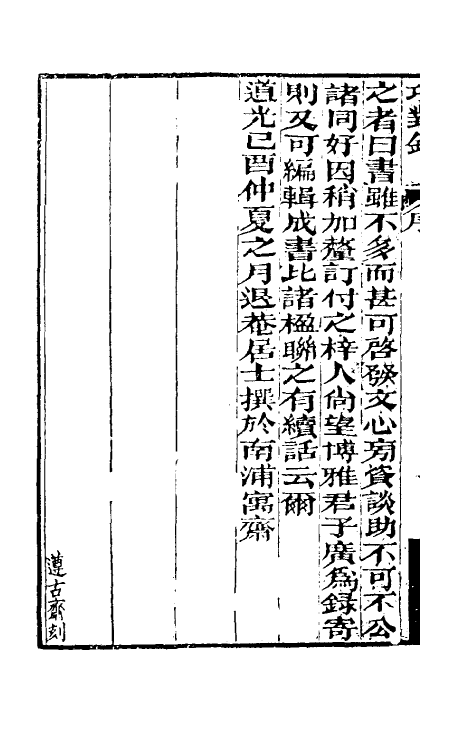 巧對錄　序
之者曰書雖不多而甚可啓發文心旁資談助不可不公
諸同好因稍加釐訂付之梓人尙望博雅君子廣爲錄寄
則又可編輯成書比諸楹聯之有續話云爾
道光己酉仲夏之月退菴居士撰於南浦寓齋
遵古齋刻